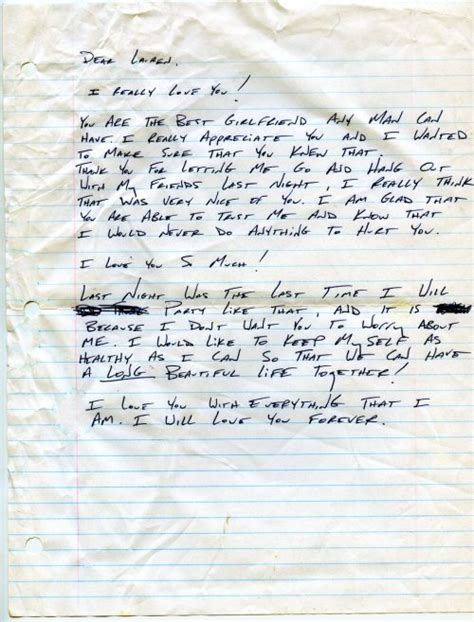 Dear Lauren.
I really love you!
You are the best girlfriend any man can
have. I really appreciate you and I wanted
to make sure that you knew that.
Thank you for letting me go and hang out
with my friends last night, I really think
that was very nice of you. I am glad that
you are able to trust me and know that
I would never do anything to hurt you.
I love you so much!
Last night was the last time I will
party like that, and it is
because I dont want you to worry about
me. I would like to keep myself as
healthy as I can so that we can have
a long beautiful life together!
I love you with everything that I
am. I will love you forever.